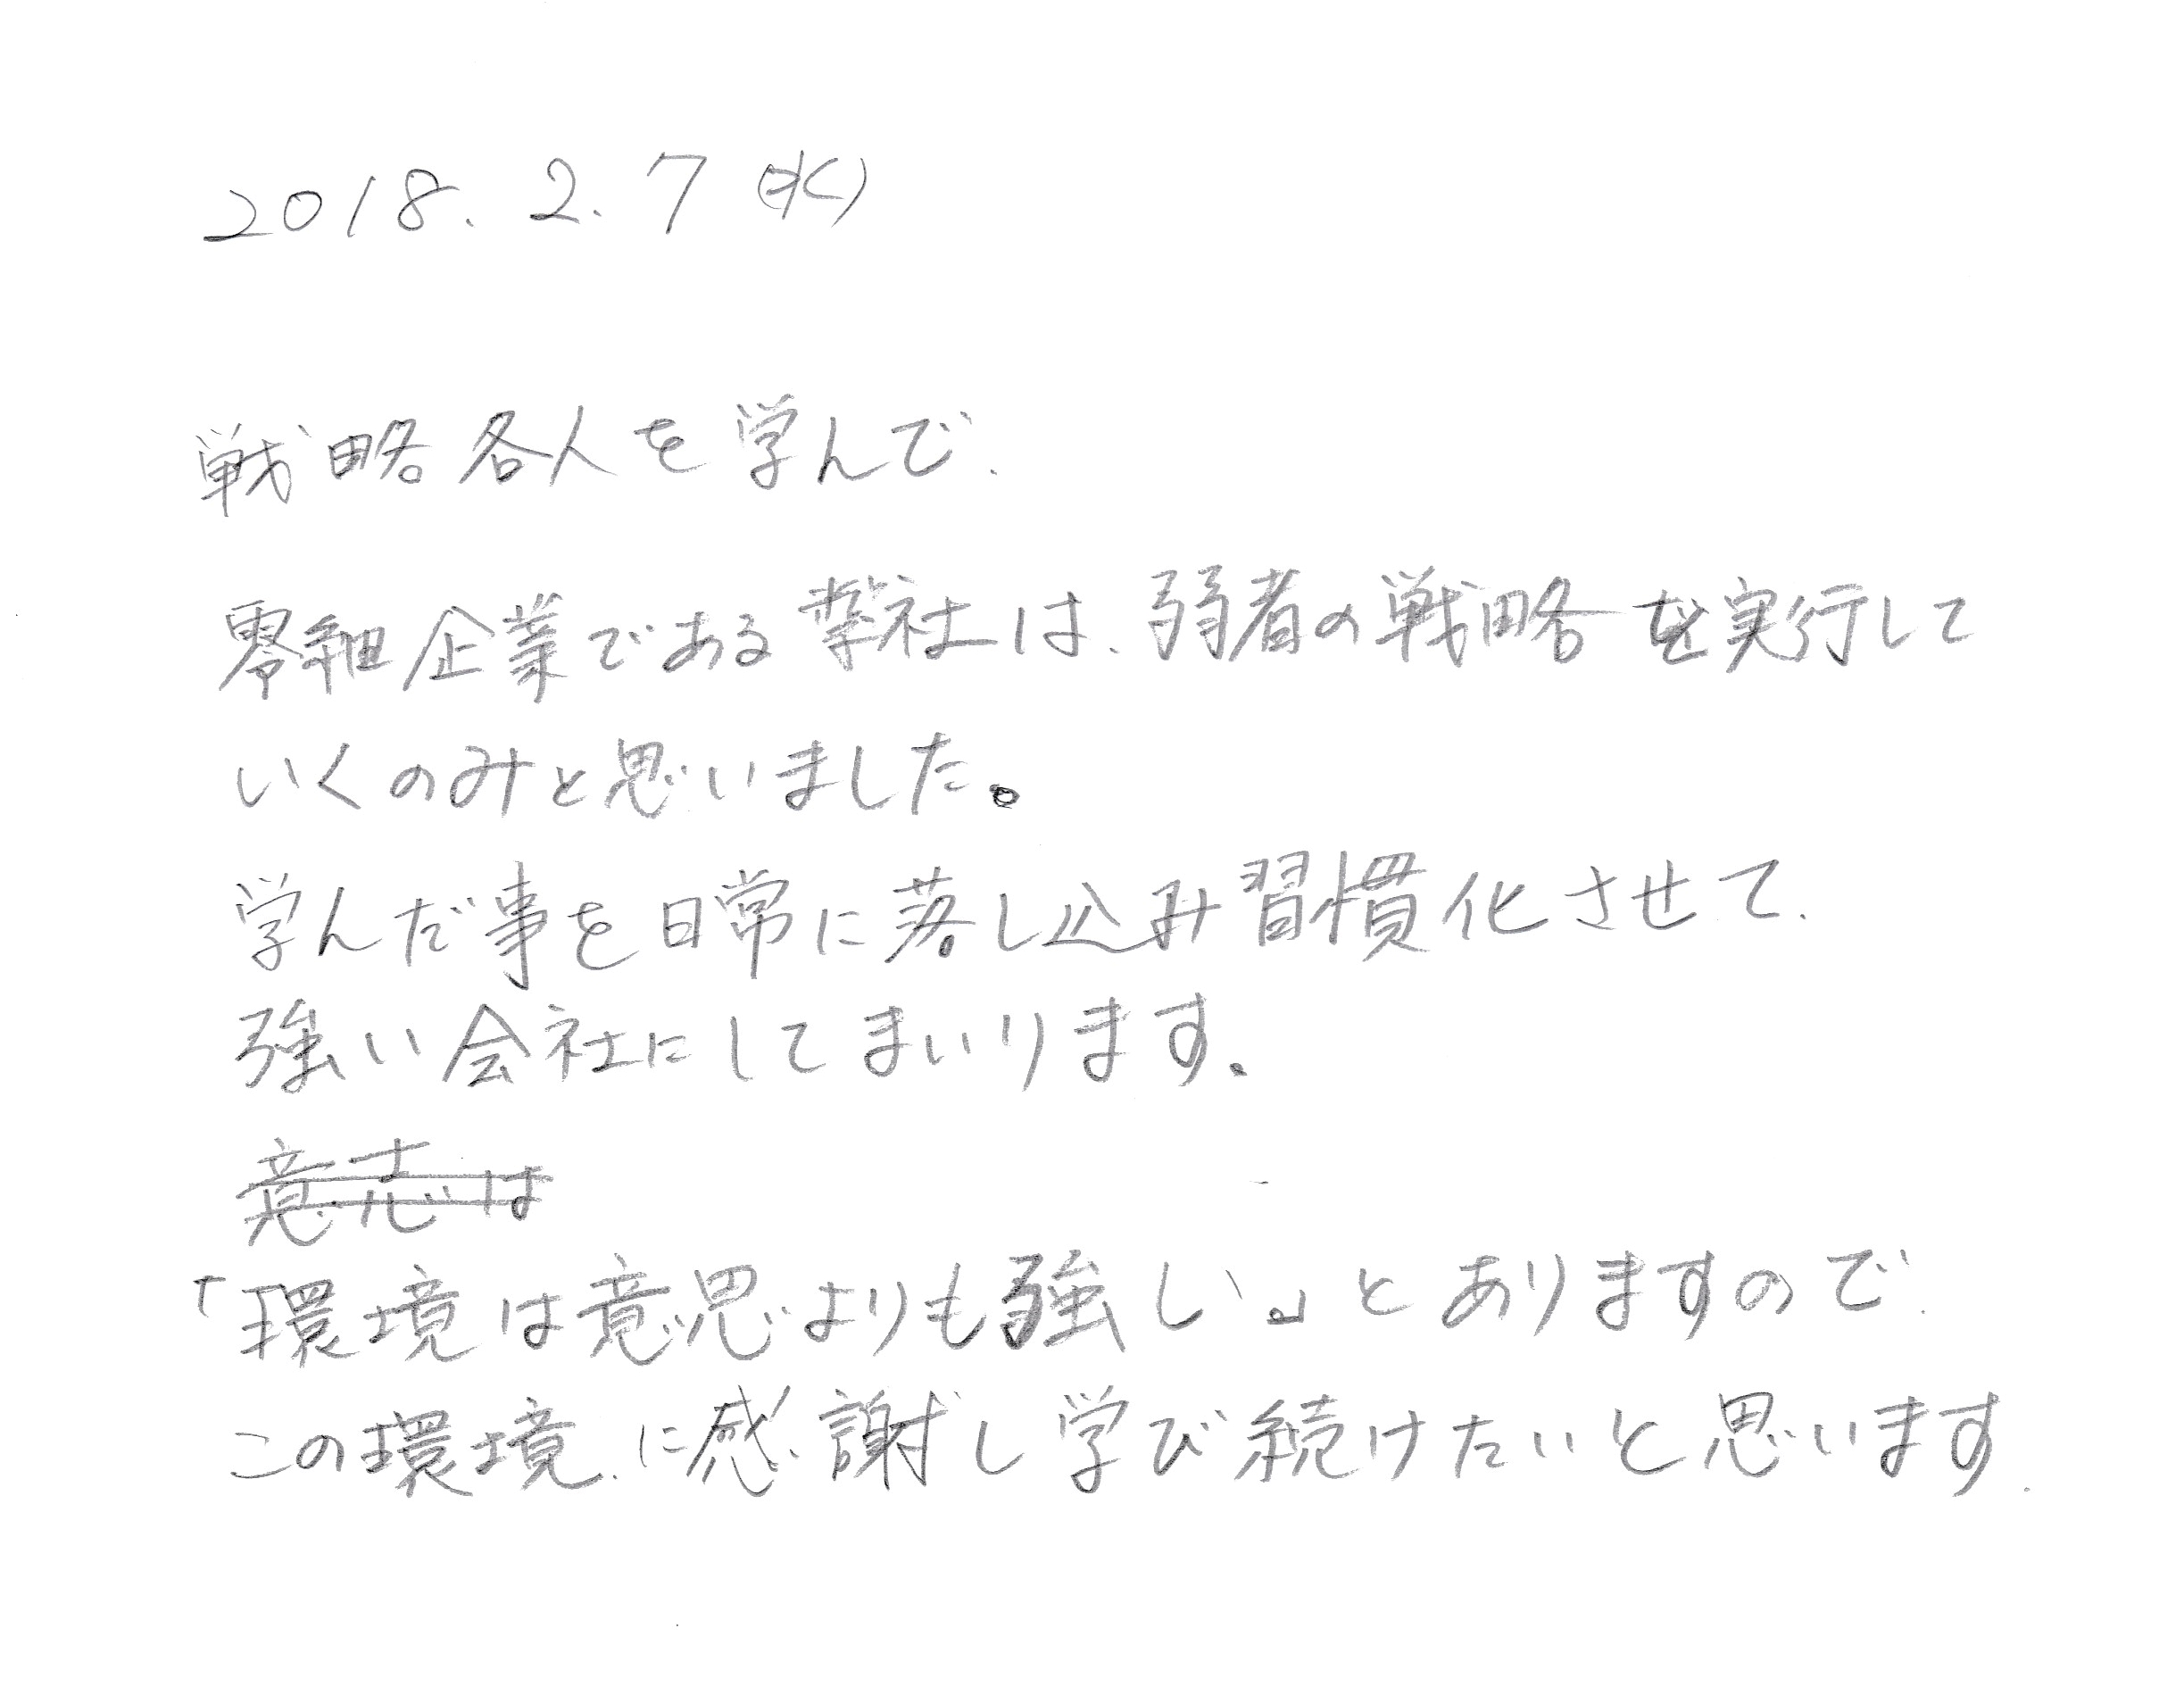 2018.2.7 (水)
戦略各人を学んで、
零細企業である弊社は、弱者の戦略を実行して
いくのみと思いました。
学んだ事を日常に落し込み習慣化させて、
強い会社にしてまいります。
意志は
「環境は意思よりも強し、」とありますので、
この環境に感謝し学び続けたいと思います.